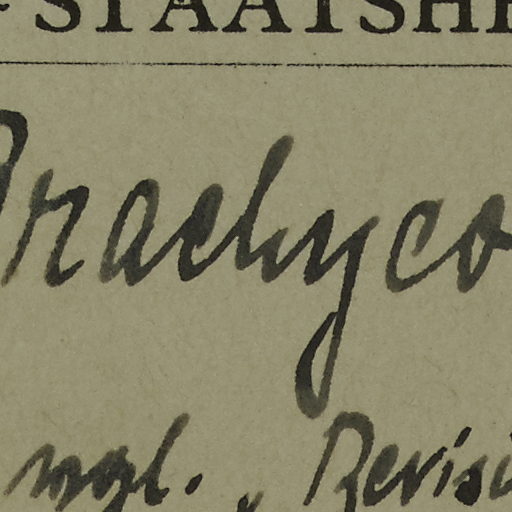 STAATSHE
Brachyco
vgl. „Revisi